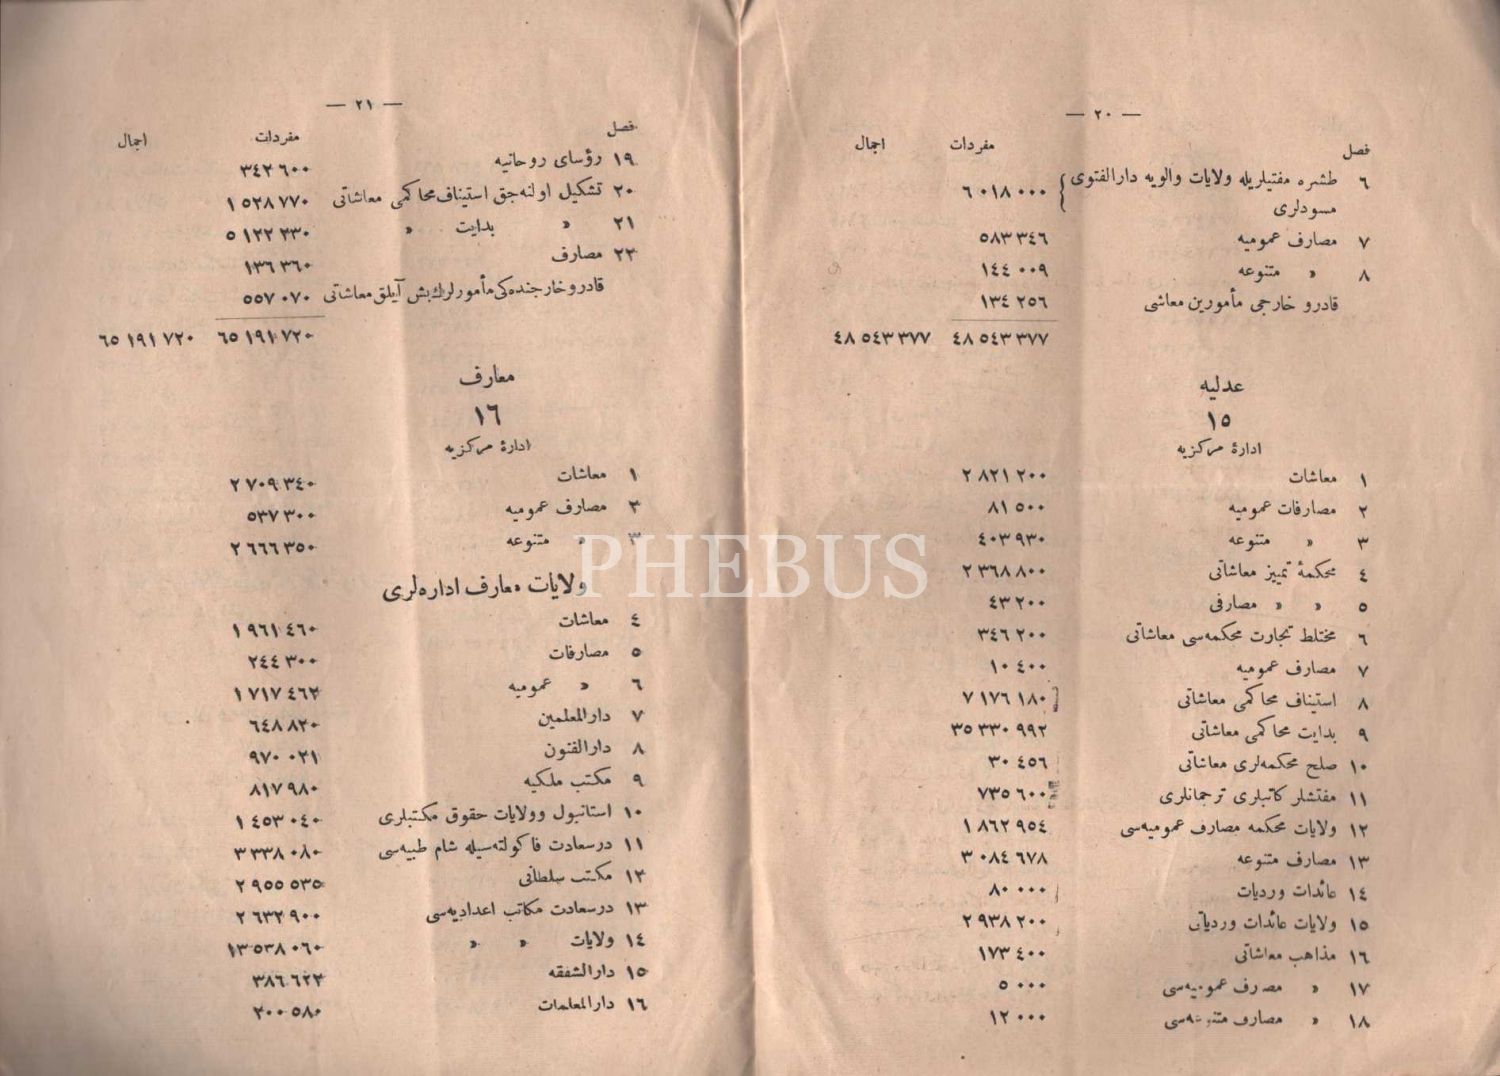 — ٢٠ —
فصل مفردات اجمال
٦ طشره مفتيلريله ولايات والويه دارالفتوى مسودلرى ٦٠١٨٠٠٠
٧ مصارف عموميه ٥٨٣٣٤٦
٨ » متنوعه ١٤٤٠٠٩
قادرو خارجى مأمورين معاشى ١٣٤٢٥٦
٤٨٥٤٣٣٧٧ ٤٨٥٤٣٣٧٧
عدليه
١٥
ادارۀ مركزيه
١ معاشات ٢٨٢١٢٠٠
٢ مصارفات عموميه ٨١٥٠٠
٣ » متنوعه ٤٠٣٩٣٠
٤ محكمۀ تمييز معاشاتى ٢٣٦٨٨٠٠
٥ » » مصارفى ٤٣٢٠٠
٦ مختلط تجارت محكمه‌سى معاشاتى ٣٤٦٢٠٠
٧ مصارف عموميه ١٠٤٠٠
٨ استيناف محاكمى معاشاتى ٧١٧٦١٨٠
٩ بدايت محاكمى معاشاتى ٣٥٣٣٠٩٩٢
١٠ صلح محكمه‌لرى معاشاتى ٣٠٤٥٦
١١ مفتشلر كاتبلرى ترجمانلرى ٧٣٥٦٠٠
١٢ ولايات محكمه مصارف عموميه‌سى ١٨٦٢٩٥٤
١٣ مصارف متنوعه ٣٠٨٤٦٧٨
١٤ عائدات ورديات ٨٠٠٠٠
١٥ ولايات عائدات وردياتى ٢٩٣٨٢٠٠
١٦ مذاهب معاشاتى ١٧٣٤٠٠
١٧ » مصرف عموميه‌سى ٥٠٠٠
١٨ » مصارف متنوعه‌سى ١٢٠٠٠
— ٢١ —
فصل مفردات اجمال
١٩ رؤساى روحانيه ٣٤٢٦٠٠
٢٠ تشكيل اولنه‌جق استيناف محاكمى معاشاتى ١٥٢٨٧٧٠
٢١ » بدايت » ٥١٢٢٣٣٠
٢٢ مصارف ١٣٦٣٦٠
قادرو خارجنده‌كى مأمورلرك بش آيلق معاشاتى ٥٥٧٠٧٠
٦٥١٩١٧٢٠ ٦٥١٩١٧٢٠
معارف
١٦
ادارۀ مركزيه
١ معاشات ٢٧٠٩٣٤٠
٢ مصارف عموميه ٥٣٧٣٠٠
٣ » متنوعه ٢٦٦٦٣٥٠
ولايات معارف اداره‌لرى
٤ معاشات ١٩٦١٤٦٠
٥ مصارفات ٢٤٤٣٠٠
٦ » عموميه ١٧١٧٤٦٢
٧ دارالمعلمين ٦٤٨٨٢٠
٨ دارالفنون ٩٧٠٠٢١
٩ مكتب ملكيه ٨١٧٩٨٠
١٠ استانبول وولايات حقوق مكتبلرى ١٤٥٣٠٤٠
١١ درسعادت فاكولته‌سيله شام طبيه‌سى ٣٣٣٨٠٨٠
١٢ مكتب سلطانى ٢٩٥٥٥٣٥
١٣ درسعادت مكاتب اعداديه‌سى ٢٦٣٢٩٠٠
١٤ ولايات » » ١٣٥٣٨٠٦٠
١٥ دارالشفقه ٣٨٦٦٢٢
١٦ دارالمعلمات ٢٠٠٥٨٠
PHEBUS